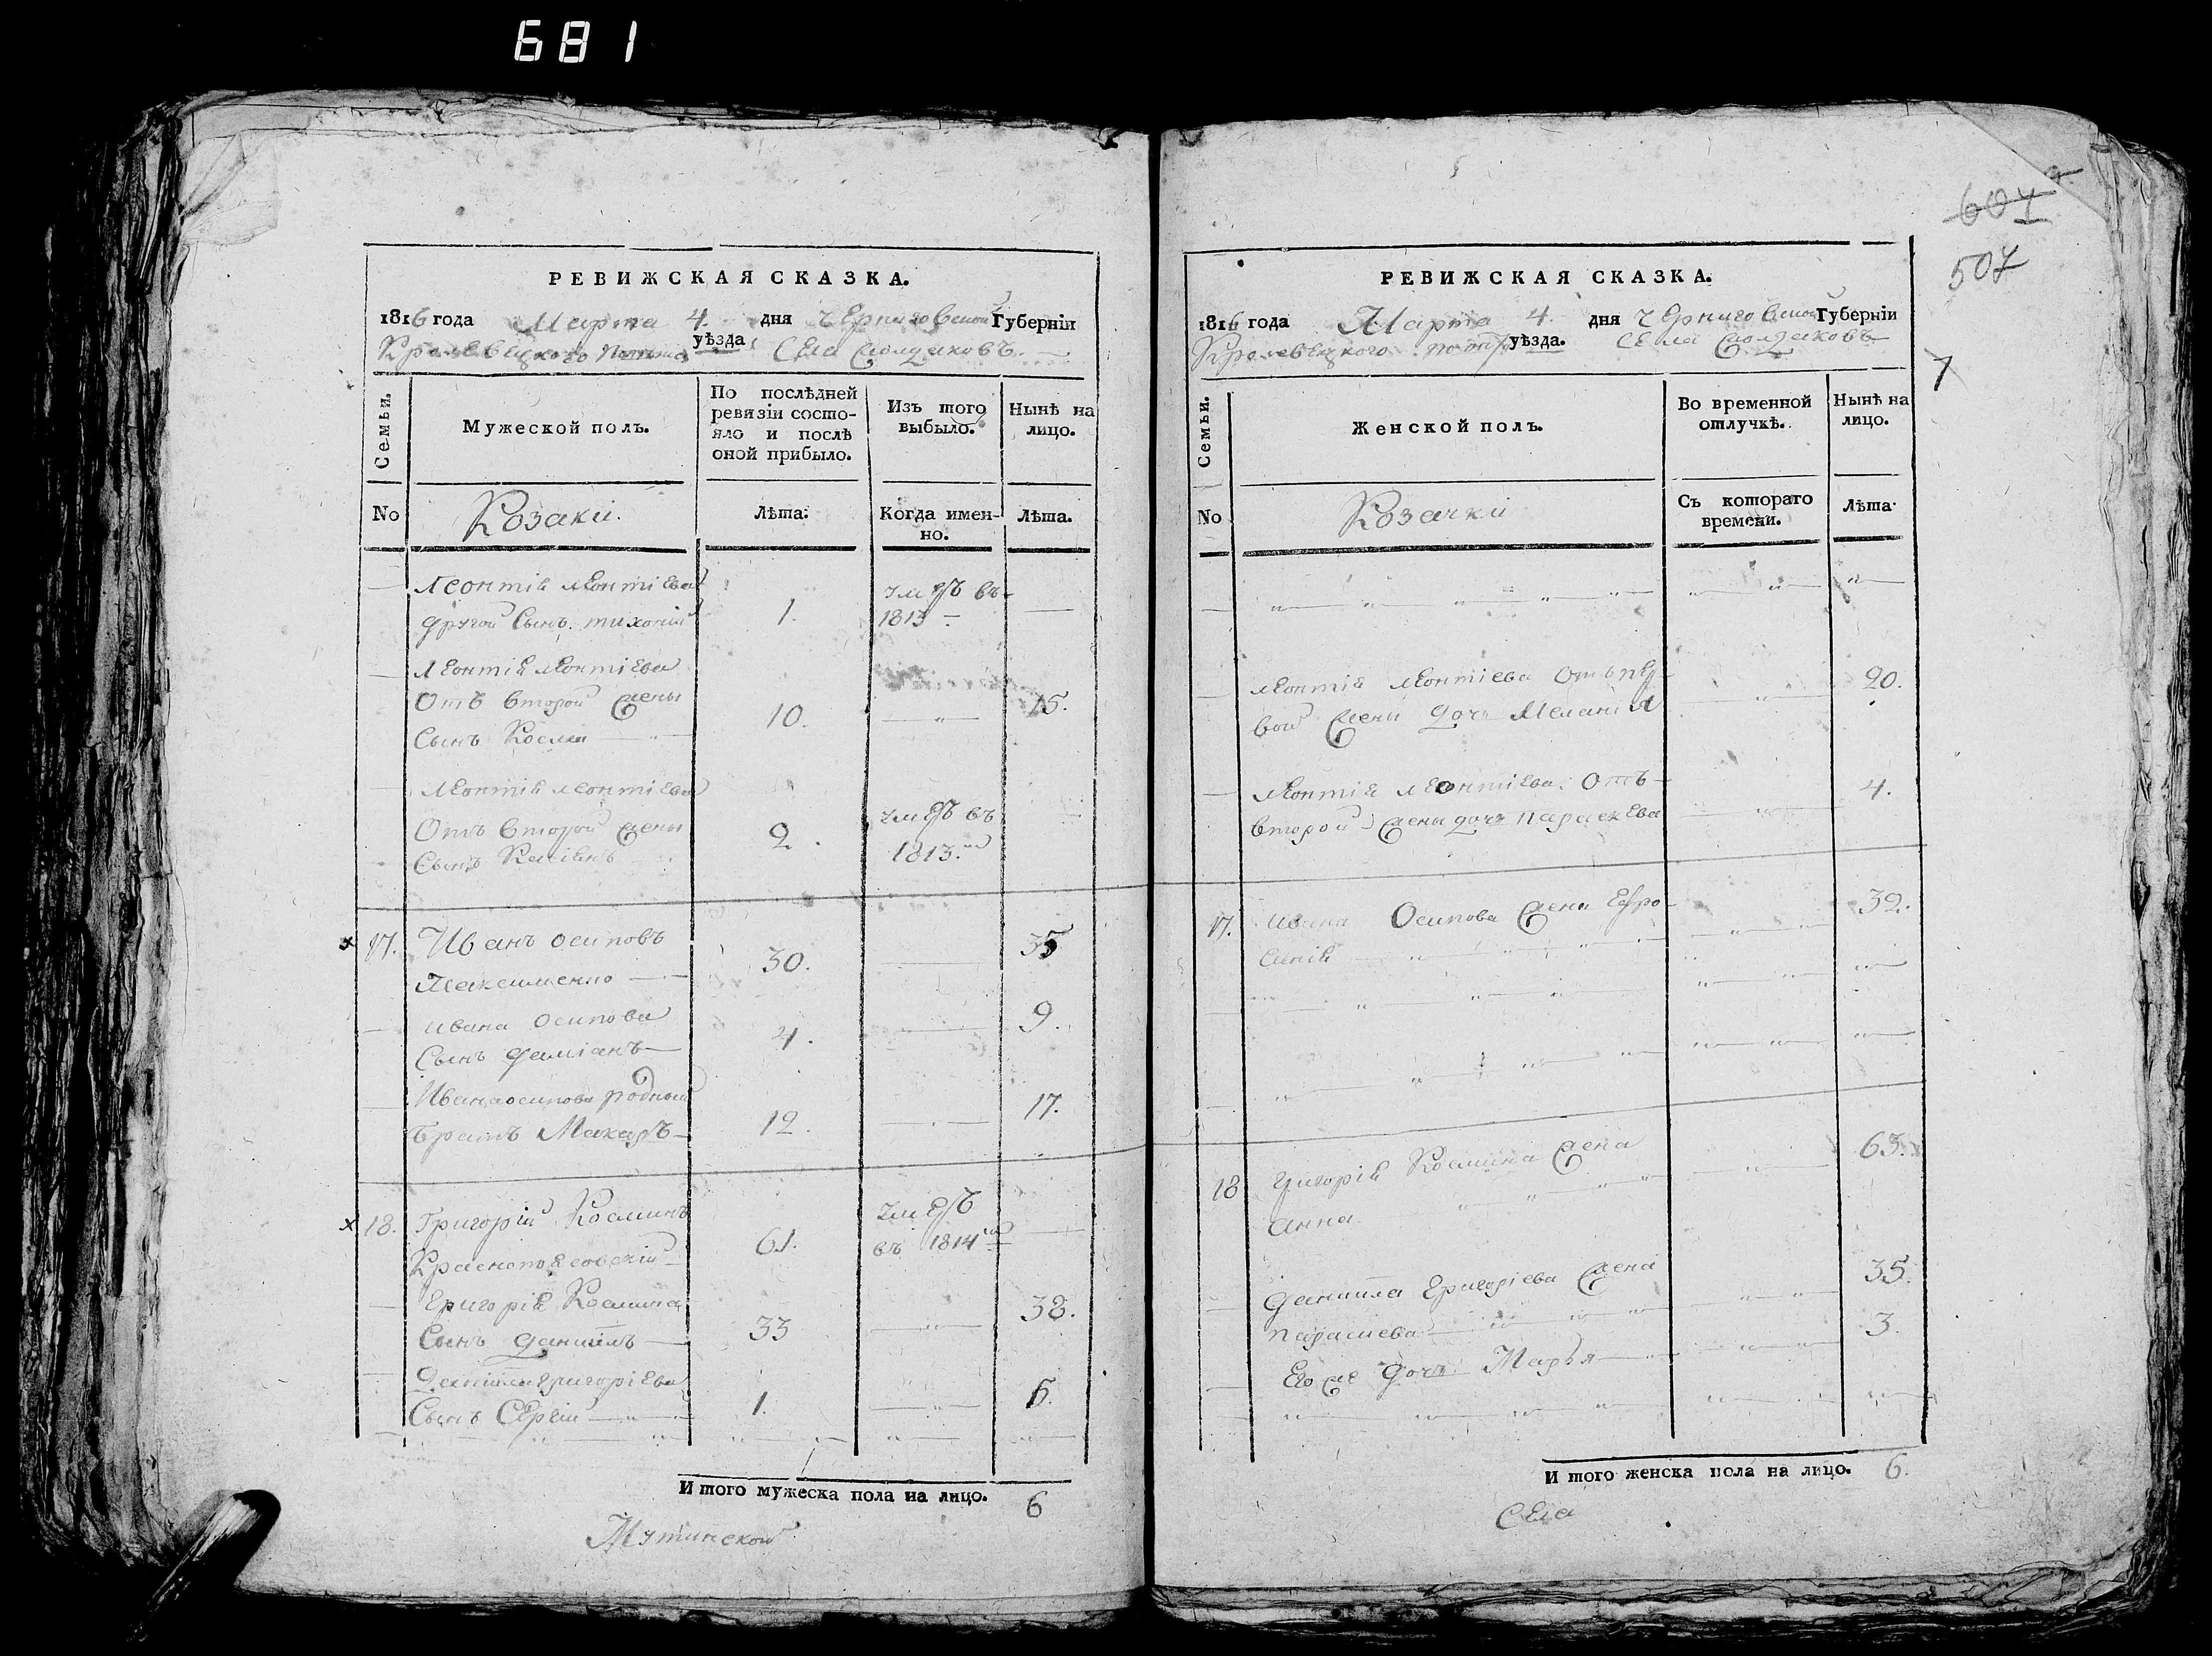 681
РЕВИЖСКАЯ СКАЗКА.
1816 года Марта 4. дня Черниговской Губерніи
Кролевецкого уѣзда Села
Семьи.
Мужеской полъ.
По послѣдней ревязіи состояло и послѣ оной прибыло.
Изъ того выбыло.
Нынѣ на лицо.
No
Козаки.
Лѣта.
Когда именно.
Лѣта.
Леонтія Леонтіева
другой Сынъ тихоній
1.
умеръ въ
1813
Леонтія Леонтіева
Отъ второй жены
Сынъ Косма
10.
15.
Леонтія Леонтіева
Отъ второй жены
Сынъ Касіянъ
2.
умеръ въ
1813.
17. Иванъ Осиповъ
Максименко
30.
35
Ивана Осипова
Сынъ Даміанъ
4.
9.
Ивана Осипова родный
Братъ Макаръ
12.
17.
18. Григорій Косминъ
Краснопоясовскій
61.
умеръ
въ 1814
Григорія Космина
Сынъ Даніилъ
33
38.
Даніила Григоріева
Сынъ Сергій
1.
6.
И того мужеска пола на лицо. 6
Мутинской
607
507
7
РЕВИЖСКАЯ СКАЗКА.
1816 года Марта 4. дня Черниговской Губерніи
Кролевецкого уѣзда. Села
Семьи.
Женской полъ.
Во временной отлучкѣ.
Нынѣ на лицо.
No
Козачки
Съ котораго времени.
Лѣта.
Леонтія Леонтіева Отъ пер-
вой жены дочь Меланія
20.
Леонтія Леонтіева Отъ
второй жены дочь Параскева
4.
17. Ивана Осипова жена Ефро-
синія
32.
18 Григорія Космина жена
Анна
63.
Даниила Григоріева жена
Параскева
35.
Его же дочь Марья
3.
И того женска пола на лицо. 6.
Села